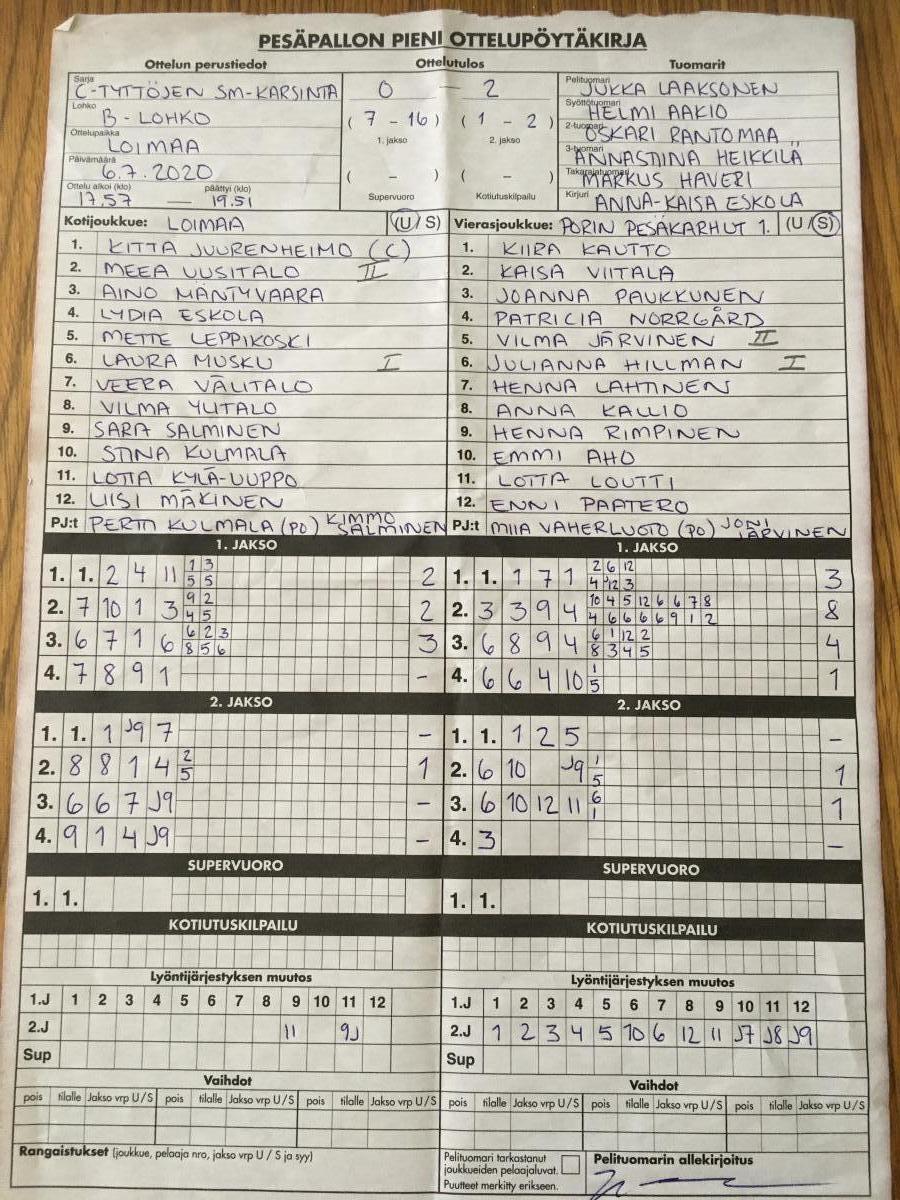 PESÄPALLON PIENI OTTELUPÖYTÄKIRJA
Ottelun perustiedot Ottelutulos Tuomarit
Sarja C-TYTTÖJEN SM-KARSINTA 0 — 2 Pelituomari JUKKA LAAKSONEN
Lohko B-LOHKO (7 - 16) (1 - 2) Syöttötuomari HELMI AAKIO
Ottelupaikka LOIMAA 1. jakso 2. jakso 2-tuomari OSKARI RANTOMAA
Päivämäärä 6.7.2020 ( - ) ( - ) 3-tuomari ANNASTIINA HEIKKILÄ
Takarajatuomari MARKUS HAVERI
Ottelu alkoi (klo) 17.57 — päättyi (klo) 19.51 Supervuoro Kotiutuskilpailu Kirjuri ANNA-KAISA ESKOLA
Kotijoukkue: LOIMAA (U/S) Vierasjoukkue: PORIN PESÄKARHUT 1. (U/S)
1. KITTA JUURENHEIMO (C) 1. KIIRA KAUTTO
2. MEEA UUSITALO II 2. KAISA VIITALA
3. AINO MÄNTYVAARA 3. JOANNA PAUKKUNEN
4. LYDIA ESKOLA 4. PATRICIA NORRGÅRD
5. METTE LEPPIKOSKI 5. VILMA JÄRVINEN II
6. LAURA MUSKU I 6. JULIANNA HILLMAN I
7. VEERA VÄLITALO 7. HENNA LAHTINEN
8. VILMA YLITALO 8. ANNA KALLIO
9. SARA SALMINEN 9. HENNA RIMPINEN
10. STINA KULMALA 10. EMMI AHO
11. LOTTA KYLÄ-UUPPO 11. LOTTA LOUTTI
12. LIISI MÄKINEN 12. ENNI PAATERO
PJ:t PERTTI KULMALA (PO) KIMMO SALMINEN PJ:t MIIA VAHERLUOTO (PO) JONI JÄRVINEN
1. JAKSO 1. JAKSO
1 3 2 6 12
1. 1. 2 4 11 5 5 2 1. 1. 1 7 1 4 J12 3 3
9 2 10 4 5 12 6 6 7 8
2. 7 10 1 3 4 5 2 2. 3 3 9 4 4 6 6 6 6 9 1 2 8
6 2 3 6 1 12 2
3. 6 7 1 6 8 5 6 3 3. 6 8 9 4 8 3 4 5 4
4. 7 8 9 1 - 4. 6 6 4 10 1 5 1
2. JAKSO 2. JAKSO
1. 1. 1 J9 7 - 1. 1. 1 2 5 -
2. 8 8 1 4 2 5 1 2. 6 10 J9 1 5 1
3. 6 6 7 J9 - 3. 6 10 12 11 6 1 1
4. 9 1 4 J9 - 4. 3 -
SUPERVUORO SUPERVUORO
1. 1. 1. 1.
KOTIUTUSKILPAILU KOTIUTUSKILPAILU
Lyöntijärjestyksen muutos Lyöntijärjestyksen muutos
1.J 1 2 3 4 5 6 7 8 9 10 11 12 1.J 1 2 3 4 5 6 7 8 9 10 11 12
2.J 11 9J 2.J 1 2 3 4 5 10 6 12 11 J7 J8 J9
Sup Sup
Vaihdot Vaihdot
pois tilalle Jakso vrp U/S pois tilalle Jakso vrp U/S pois tilalle Jakso vrp U/S pois tilalle Jakso vrp U/S pois tilalle Jakso vrp U/S pois tilalle Jakso vrp U/S
Rangaistukset (joukkue, pelaaja nro, jakso vrp U / S ja syy) Pelituomari tarkastanut joukkueiden pelaajaluvat. Pelituomarin allekirjoitus
Puutteet merkitty erikseen.